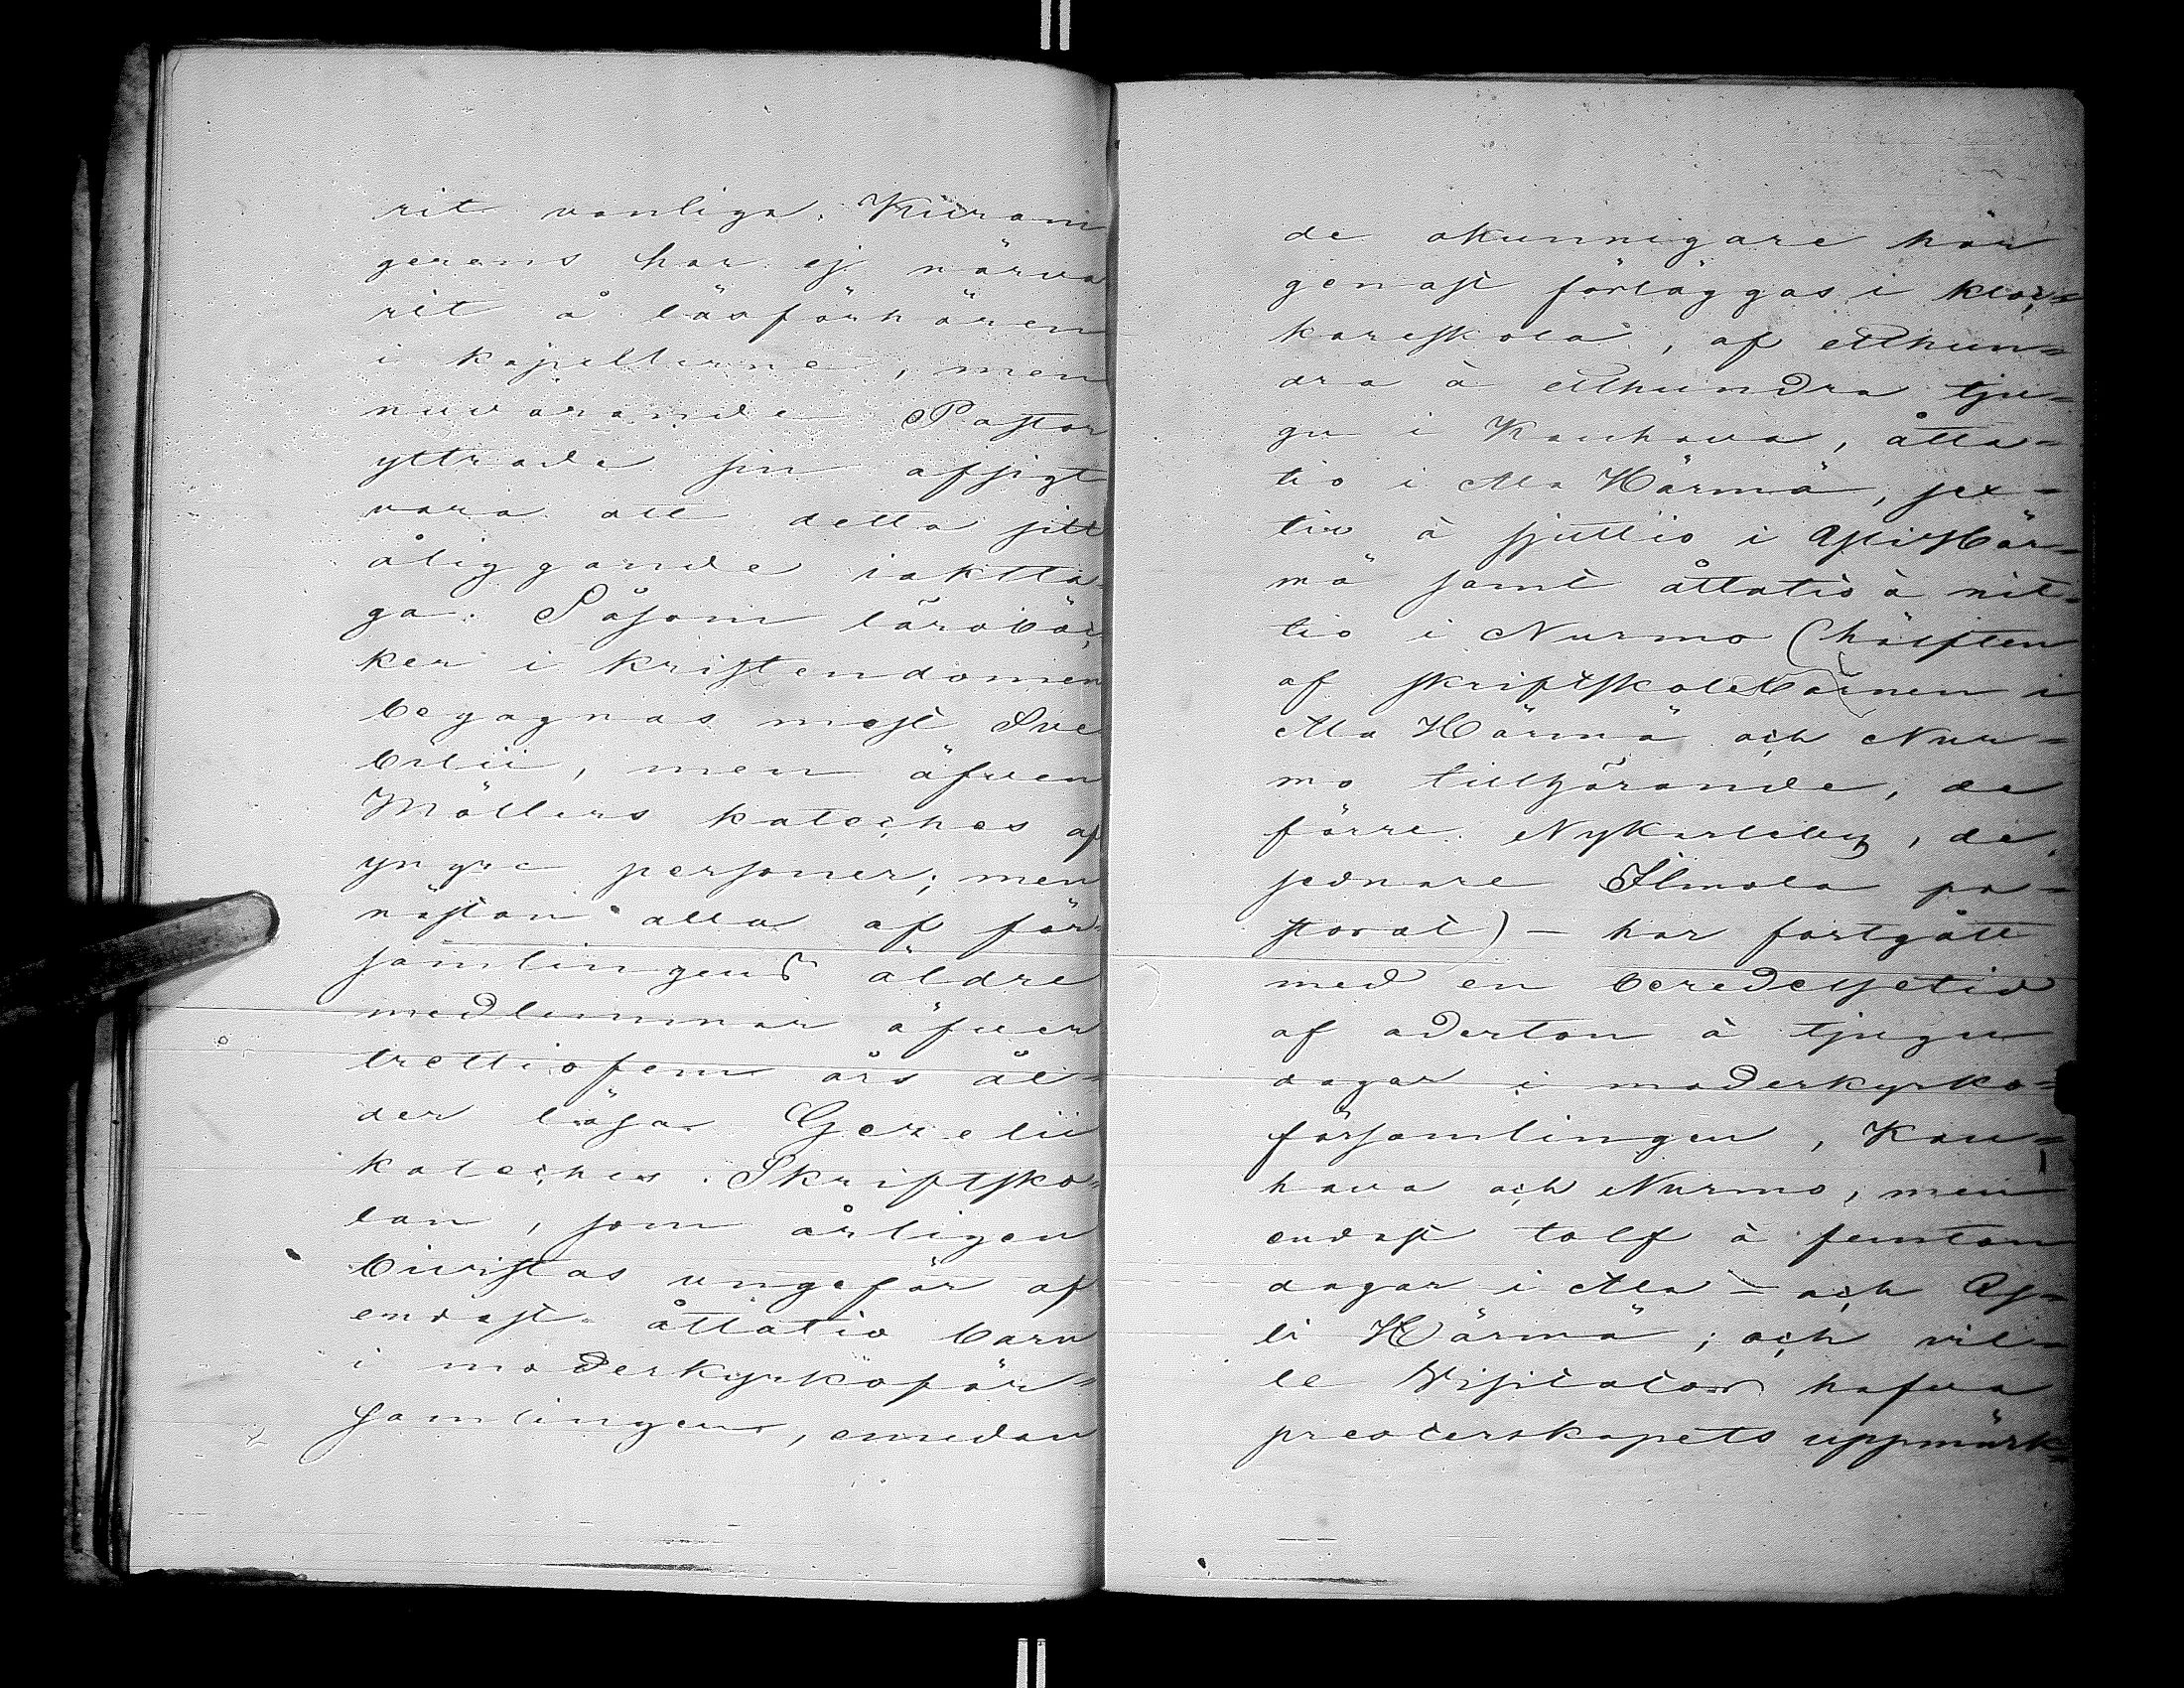 rit vanliga. Kuram
gerens har ej närva
rit å läsförhören
i kapellerne, men
nuvarande Pastor
yttrade sin afsigt
vara att detta sitt
åliggande iaktta
ga. Såsom läroböc
ker i kristendomen
begagnas mest Sve
bilii, men äfven
Möllers kateches af
yngre personer; men
nästan alla af för
samlingens äldre
medlemmar öfver
trettiofem års ål=
der läsa Gezelii
kateches. Skriftsko=
lan, som årligen
bivistas ungefär af
endast åttatio barn
i moderkyrkoför=
samlingen, emedan
de okunnigare här
genast förläggas i kloc=
kareskola, af etthun=
dra à etthundra tju=
gu i Kauhava, åtta=
tio i Ala Härmä, sex=
tio à sjuttio i Ylihär=
mä samt åttatio à nit=
tio i Nurmo (hälften
af skriftskolebarnen i
Ala Härmä och Nur=
mo tillhörande, de
förre Nykarleby, de
sednare Ilmola pa=
storat) - har fortgått
med en beredelsetid
af aderton à tjugu
dagar i moderkyrko=
församlingen, Kau=
hava och Nurmo, men
endast tolf à femton
dagar i Ala - och Y=
li Härmä; och vil=
le Visitator hafva
presterskapets uppmärk=